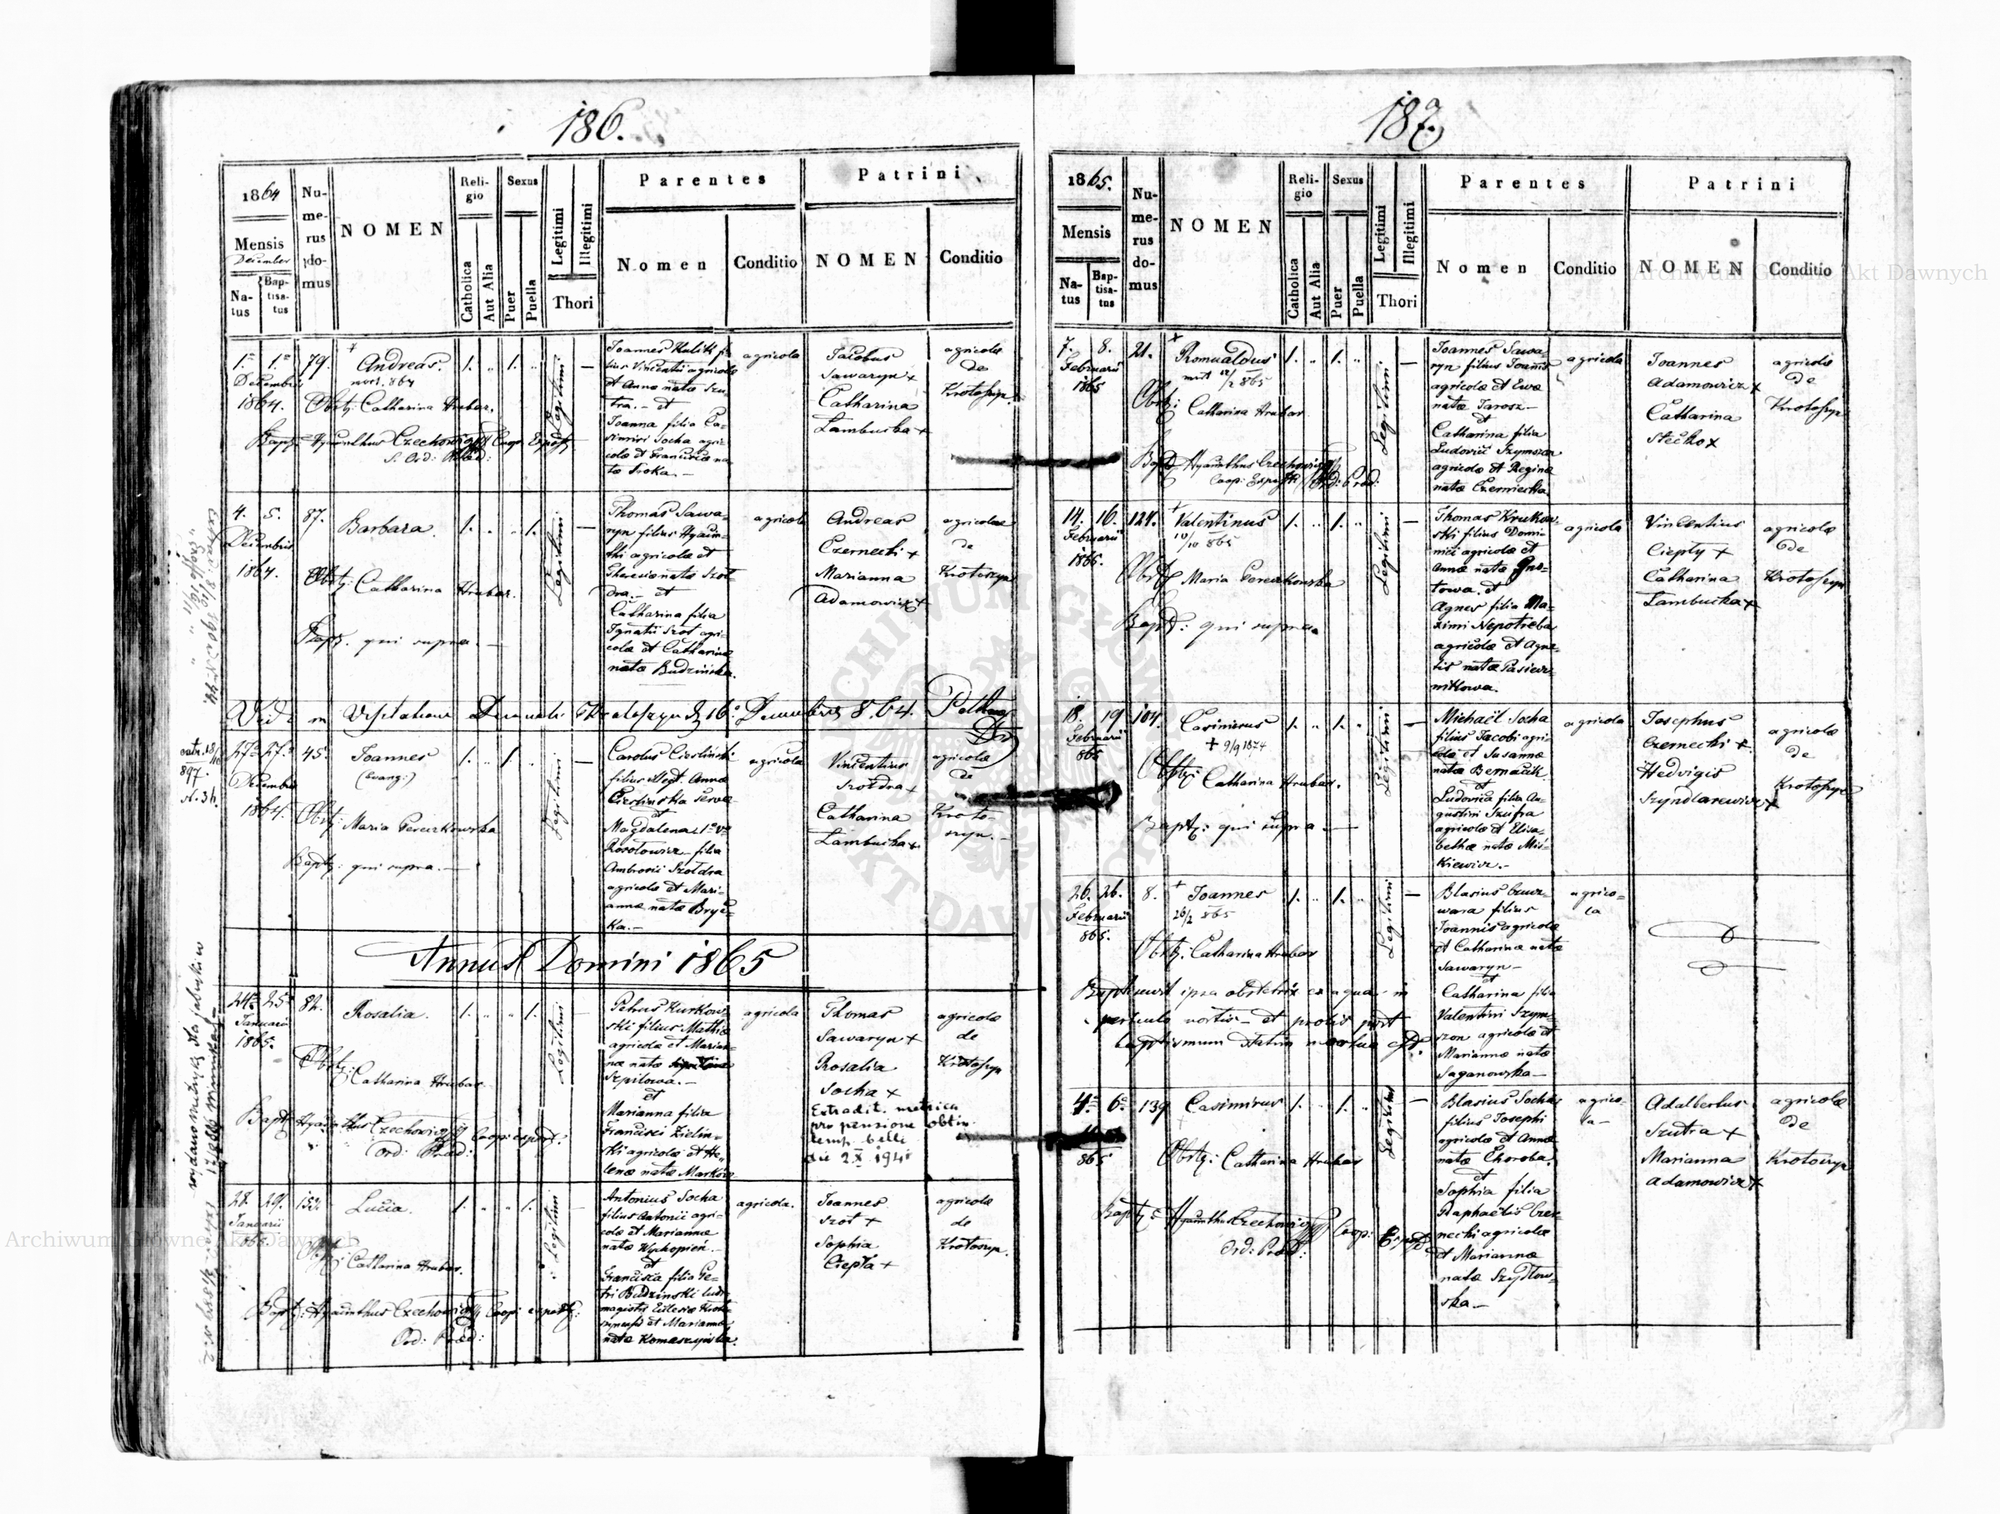 186.
1864
Mensis
December
Na-
tus
Bap-
tisa-
tus
Nu-
me-
rus
do-
mus
NOMEN
Reli-
gio
Catholica
Aut Alia
Sexus
Puer
Puella
Legitimi
Illegitimi
Thori
Parentes
Nomen
Conditio
Patrini
NOMEN
Conditio
1. 1.
Decembris
1864.
79.
Andreas.
Obstz. Catharina Hrabar.
Bapt. Hyacinthus Czechowicz Coop. Expost.
S. Ord: Præd:
1. " 1. "
Legitimi
Joannes Kulik fi-
lius Vincentii agricolæ
et Annæ natæ Szu-
tra. – et
Joanna filia Ca-
simiri Socha agri-
colæ et Franciscæ na-
tæ Sroka. –
agricola
Jacobus
Sawaryn +
Catharina
Lambucka +
agricolæ
de
Krotoszyn
4. 5.
Decembris
1864.
87.
Barbara.
Obstz. Catharina Hrabar.
Bapt. qui supra. –
1. " " 1.
Legitimi
Thomas Sawa-
ryn filius Hyacin-
thi agricolæ et
Theresiæ natæ Szot-
dra. – et
Catharina filia
Ignatii Szot agri-
colæ et Catharinæ
natæ Budzińska.
agricola
Andreas
Czernecki +
Marianna
Adamowicz +
agricolæ
de
Krotoszyn
Vidi in Visitatione Decanali Krotoszyn d. 16 Decembris 864.
27. 27.
Decembris
1864.
45.
Joannes
(Evang.)
Obstz: Maria Pereczkowska
Baptz: qui supra. –
1. " 1. "
Legitimi
Carolus Cierliński
filius Annæ
Cierlinska servæ
et
Magdalena 1o Vo
filia
Ambrosii Szotdra
agricolæ et Mari-
annæ natæ Bryć-
ka. –
agricola
Vincentius
Szotdra +
Catharina
Lambucka +
agricolæ
de
Kroto-
szyn. –
Annus Domini 1865
24. 25.
Januarii
1865.
82.
Rosalia.
Obstz:
Catharina Hrabar
Bapt. Hyacinthus Czechowicz Coop: expost:
Ord: Præd:
1. " " 1.
Legitimi
Petrus Kurkow-
ski filius Mathiæ
agricolæ et Marian-
næ natæ
Szpilowa. –
et
Marianna filia
Francisci Zielin-
ski agricolæ et He-
lenæ natæ Marków
agricola
Thomas
Sawaryn +
Rosalia
Socha +
agricolæ
de
Krotoszyn
Extradit. metrica
pro pensione obtin.
temp. belli
die 2 X 194
28. 29.
Januarii
865.
153.
Lucia.
Obstz: Catharina Hrabar.
Bapt: Hyacinthus Czechowicz Coop: expost:
Ord: Præd:
1. " " 1.
Legitimi
Antonius Socha
filius Antonii agri-
colæ et Mariannæ
natæ Wychopień.
et
Francisca filia Pe-
tri Budzinski ludi-
magistri Ecclesiæ Kroto-
et Mariannæ
natæ Komaszyńska.
agricola.
Joannes
Szot +
Sophia
Ciepła +
agricolæ
de
Krotoszyn.
187.
1865.
Mensis
Na-
tus
Bap-
tisa-
tus
Nu-
me-
rus
do-
mus
NOMEN
Reli-
gio
Catholica
Aut Alia
Sexus
Puer
Puella
Legitimi
Illegitimi
Thori
Parentes
Nomen
Conditio
Patrini
NOMEN
Conditio
7. 8.
Februarii
1865
21.
+
Romualdus
Obstz:
Catharina Hrabar
Bapt Hyacinthus Czechowicz
Coop: Expost: Ord: Præd:
1. " 1. "
Legitimi
Joannes Sawa-
ryn filius Joannis
agricolæ et Evæ
natæ Jarosz –
et
Catharina filia
Ludovici Szymszon
agricolæ et Reginæ
natæ Czerniecka
agricola
Joannes
Adamowicz +
Catharina
Stećko +
agricolæ
de
Krotoszyn
14. 16.
Februarii
1865.
127.
+
Valentinus
10/10 865
Obstz Maria Pereczkowska
Bapt: qui supra.
1. " 1. "
Legitimi
Thomas Krukow-
ski filius Domi-
nici agricolæ et
Annæ natæ Gno-
towa. et
Agnes filia Ma-
ximi Nepotreba
agricolæ et Agne-
tis natæ Pasiecz-
nikowa.
agricola
Vincentius
Ciepły +
Catharina
Lambucka +
agricolæ
de
Krotoszyn
18. 19
Februarii
865
104.
Casimirus
+ 9/9 1874
Obstz: Catharina Hrabar.
Baptz: qui supra –
1. " 1. "
Legitimi
Michaël Socha
filius Jacobi agri-
colæ et Susannæ
natæ Bernacik
et
Ludovica filia Au-
gustini Szufra
agricolæ et Elisa-
bethæ natæ Miś-
kiewicz. –
agricola
Josephus
Czernecki +
Hedvigis
Szyndlarewicz +
agricolæ
de
Krotoszyn
26. 26.
Februarii
865.
8.
+
Joannes
26/2 865
Obstz. Catharina Hrabar
Baptisavit ipsa obstetrix ex aqua in
periculo mortis – et prolis post
baptismum statim mortua est.
1. " 1. "
Legitimi
Blasius
filius
Joannis agricolæ
et Catharinæ natæ
Sawaryn –
et
Catharina filia
Valentini Szym-
szon agricolæ et
Mariannæ natæ
Saganowska –
agrico-
la
4. 6.
865
139
Casimirus
Obstz: Catharina Hrabar
Baptz: Hyacinthus Czechowicz Coop: Expost:
Ord: Præd:
1. " 1. "
Legitimi
Blasius Socha
filius Josephi
agricolæ et Annæ
natæ Choroba.
et
Sophia filia
Raphaelis Czer-
necki agricolæ
et Mariannæ
natæ Szydłow-
ska –
agrico-
la –
Adalbertus
Szutra +
Marianna
Adamowicz +
agricolæ
de
Krotoszyn
Archiwum Główne Akt Dawnych
Archiwum Główne Akt Dawnych
ARCHIWUM GŁÓWNE
AKT DAWNYCH